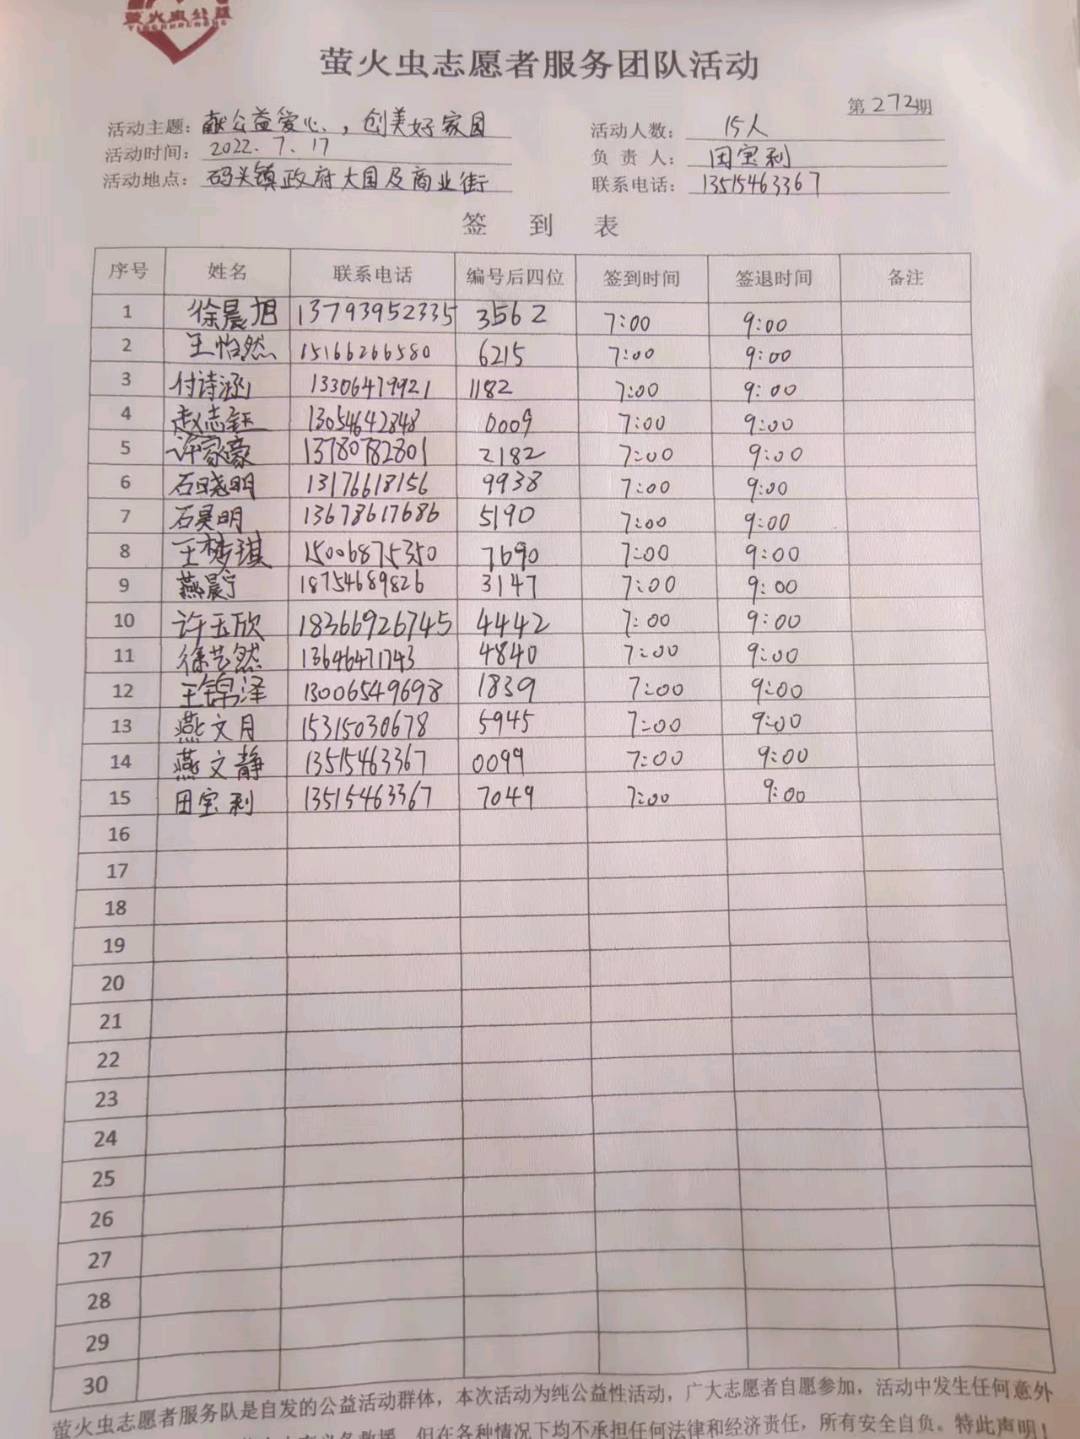 萤火虫公益
萤火虫志愿者服务团队活动
第272期
活动主题：献公益爱心，创美好家园 活动人数：15人
活动时间：2022.7.17 负责人：田宝利
活动地点：码头镇政府大园及商业街 联系电话：13515463367
签到表
序号 姓名 联系电话 编号后四位 签到时间 签退时间 备注
1 徐晨旭 13793952335 3562 7:00 9:00
2 王怡然 15166266580 6215 7:00 9:00
3 付诗涵 13306479921 1182 7:00 9:00
4 赵志钰 13054642848 0009 7:00 9:00
5 许家豪 13780782801 2182 7:00 9:00
6 石晓明 13176618156 9938 7:00 9:00
7 石昊明 13678617686 5190 7:00 9:00
8 王梦琪 15006875350 7690 7:00 9:00
9 燕晨宁 18754689826 3147 7:00 9:00
10 许玉欣 18366926745 4442 7:00 9:00
11 徐艺然 13646471743 4840 7:00 9:00
12 王锦泽 13006549698 1839 7:00 9:00
13 燕文月 15315030678 5945 7:00 9:00
14 燕文静 13515463367 0099 7:00 9:00
15 田宝利 13515463367 7049 7:00 9:00
16
17
18
19
20
21
22
23
24
25
26
27
28
29
30
萤火虫志愿者服务队是自发的公益活动群体，本次活动为纯公益性活动，广大志愿者自愿参加，活动中发生任何意外
但在各种情况下均不承担任何法律和经济责任，所有安全自负。特此声明！